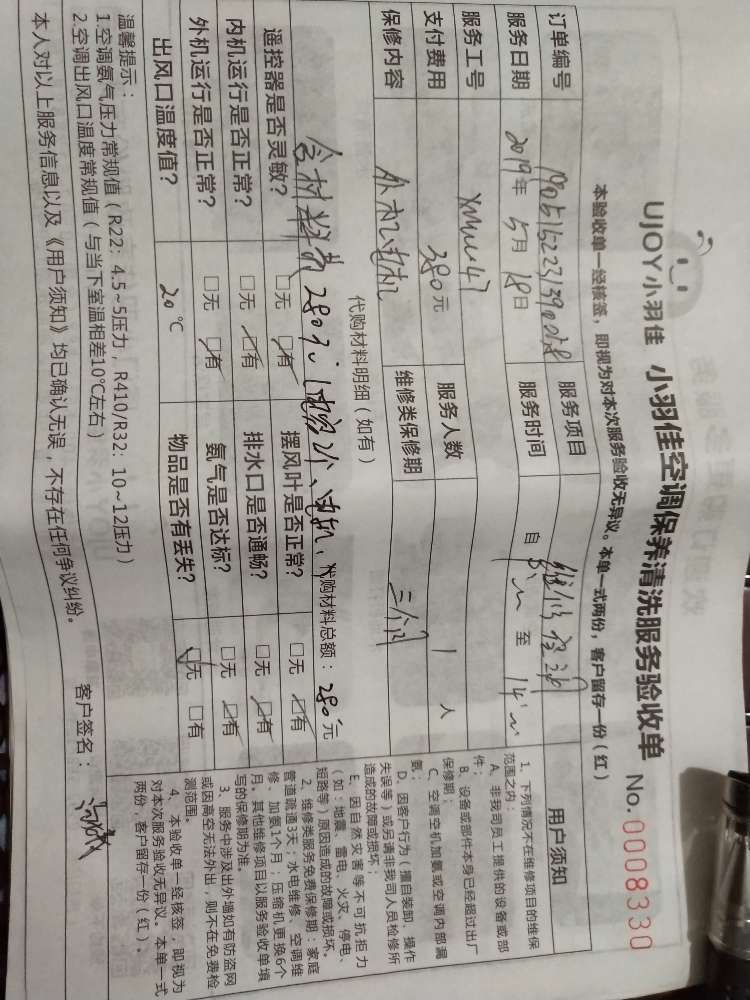 UJOY小羽佳 小羽佳空调保养清洗服务验收单 No. 0008330
本验收单一经核签，即视为对本次服务验收无异议。本单一式两份，客户留存一份(红)
订单编号 服务项目
服务日期 2019年5月18日 服务时间 自 至
服务工号 XMWW47
支付费用 380元 服务人数 1人
保修内容 外机电机 维修类保修期 三个月
代购材料明细（如有）
含材料费280元 代购材料总额：280元
遥控器是否灵敏？ □无 □有 摆风叶是否正常？ □无 □有
内机运行是否正常？ □无 □有 排水口是否通畅？ □无 □有
外机运行是否正常？ □无 □有 氨气是否达标？ □无 □有
出风口温度值？ 20℃ 物品是否有丢失？ □无 □有
温馨提示：
1.空调氨气压力常规值（R22：4.5~5压力，R410/R32：10~12压力）
2.空调出风口温度常规值（与当下室温相差10℃左右）
本人对以上服务信息以及《用户须知》均已确认无误，不存在任何争议纠纷。
客户签名：
用户须知
1、下列情况不在维修项目的维保
范围之内：
A、非我司员工提供的设备或部
件；
B、设备或部件本身已经超过出厂
保修期；
C、空调空机加氨或空调内部漏
氨；
D、因客户行为（擅自装卸、操作
失误等）或另请非我司人员检修所
造成的故障或损坏；
E、因自然灾害等不可抗拒力
（如：地震、雷电、火灾、停电、
短路等）原因造成的故障或损坏。
2、维修类服务免费保修期：家庭
管道疏通3天；水电维修、空调维
修、加氨1个月；压缩机更换6个
月。其他维修项目以服务验收单填
写的保修期为准。
3、服务中涉及出外墙如有防盗网
或因高空无法外出，则不在免费检
测范围。
4、本验收单一经核签，即视为
对本次服务验收无异议。本单一式
两份，客户留存一份（红）。